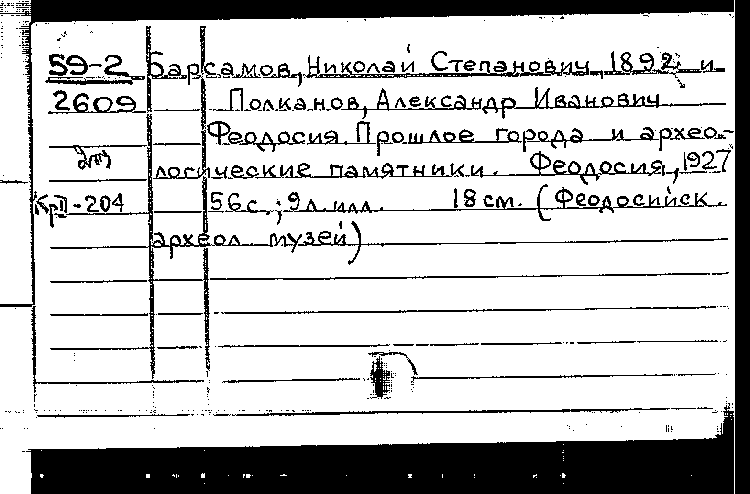 59-2 Барсамов, Николай Степанович, 1892 и
2609 Полканов, Александр Иванович
Феодосия. Прошлое города и архео-
логические памятники. Феодосия, 1927
КрII-204 56с.; 9л. илл. 18 см. (Феодосийск.
археол музей)